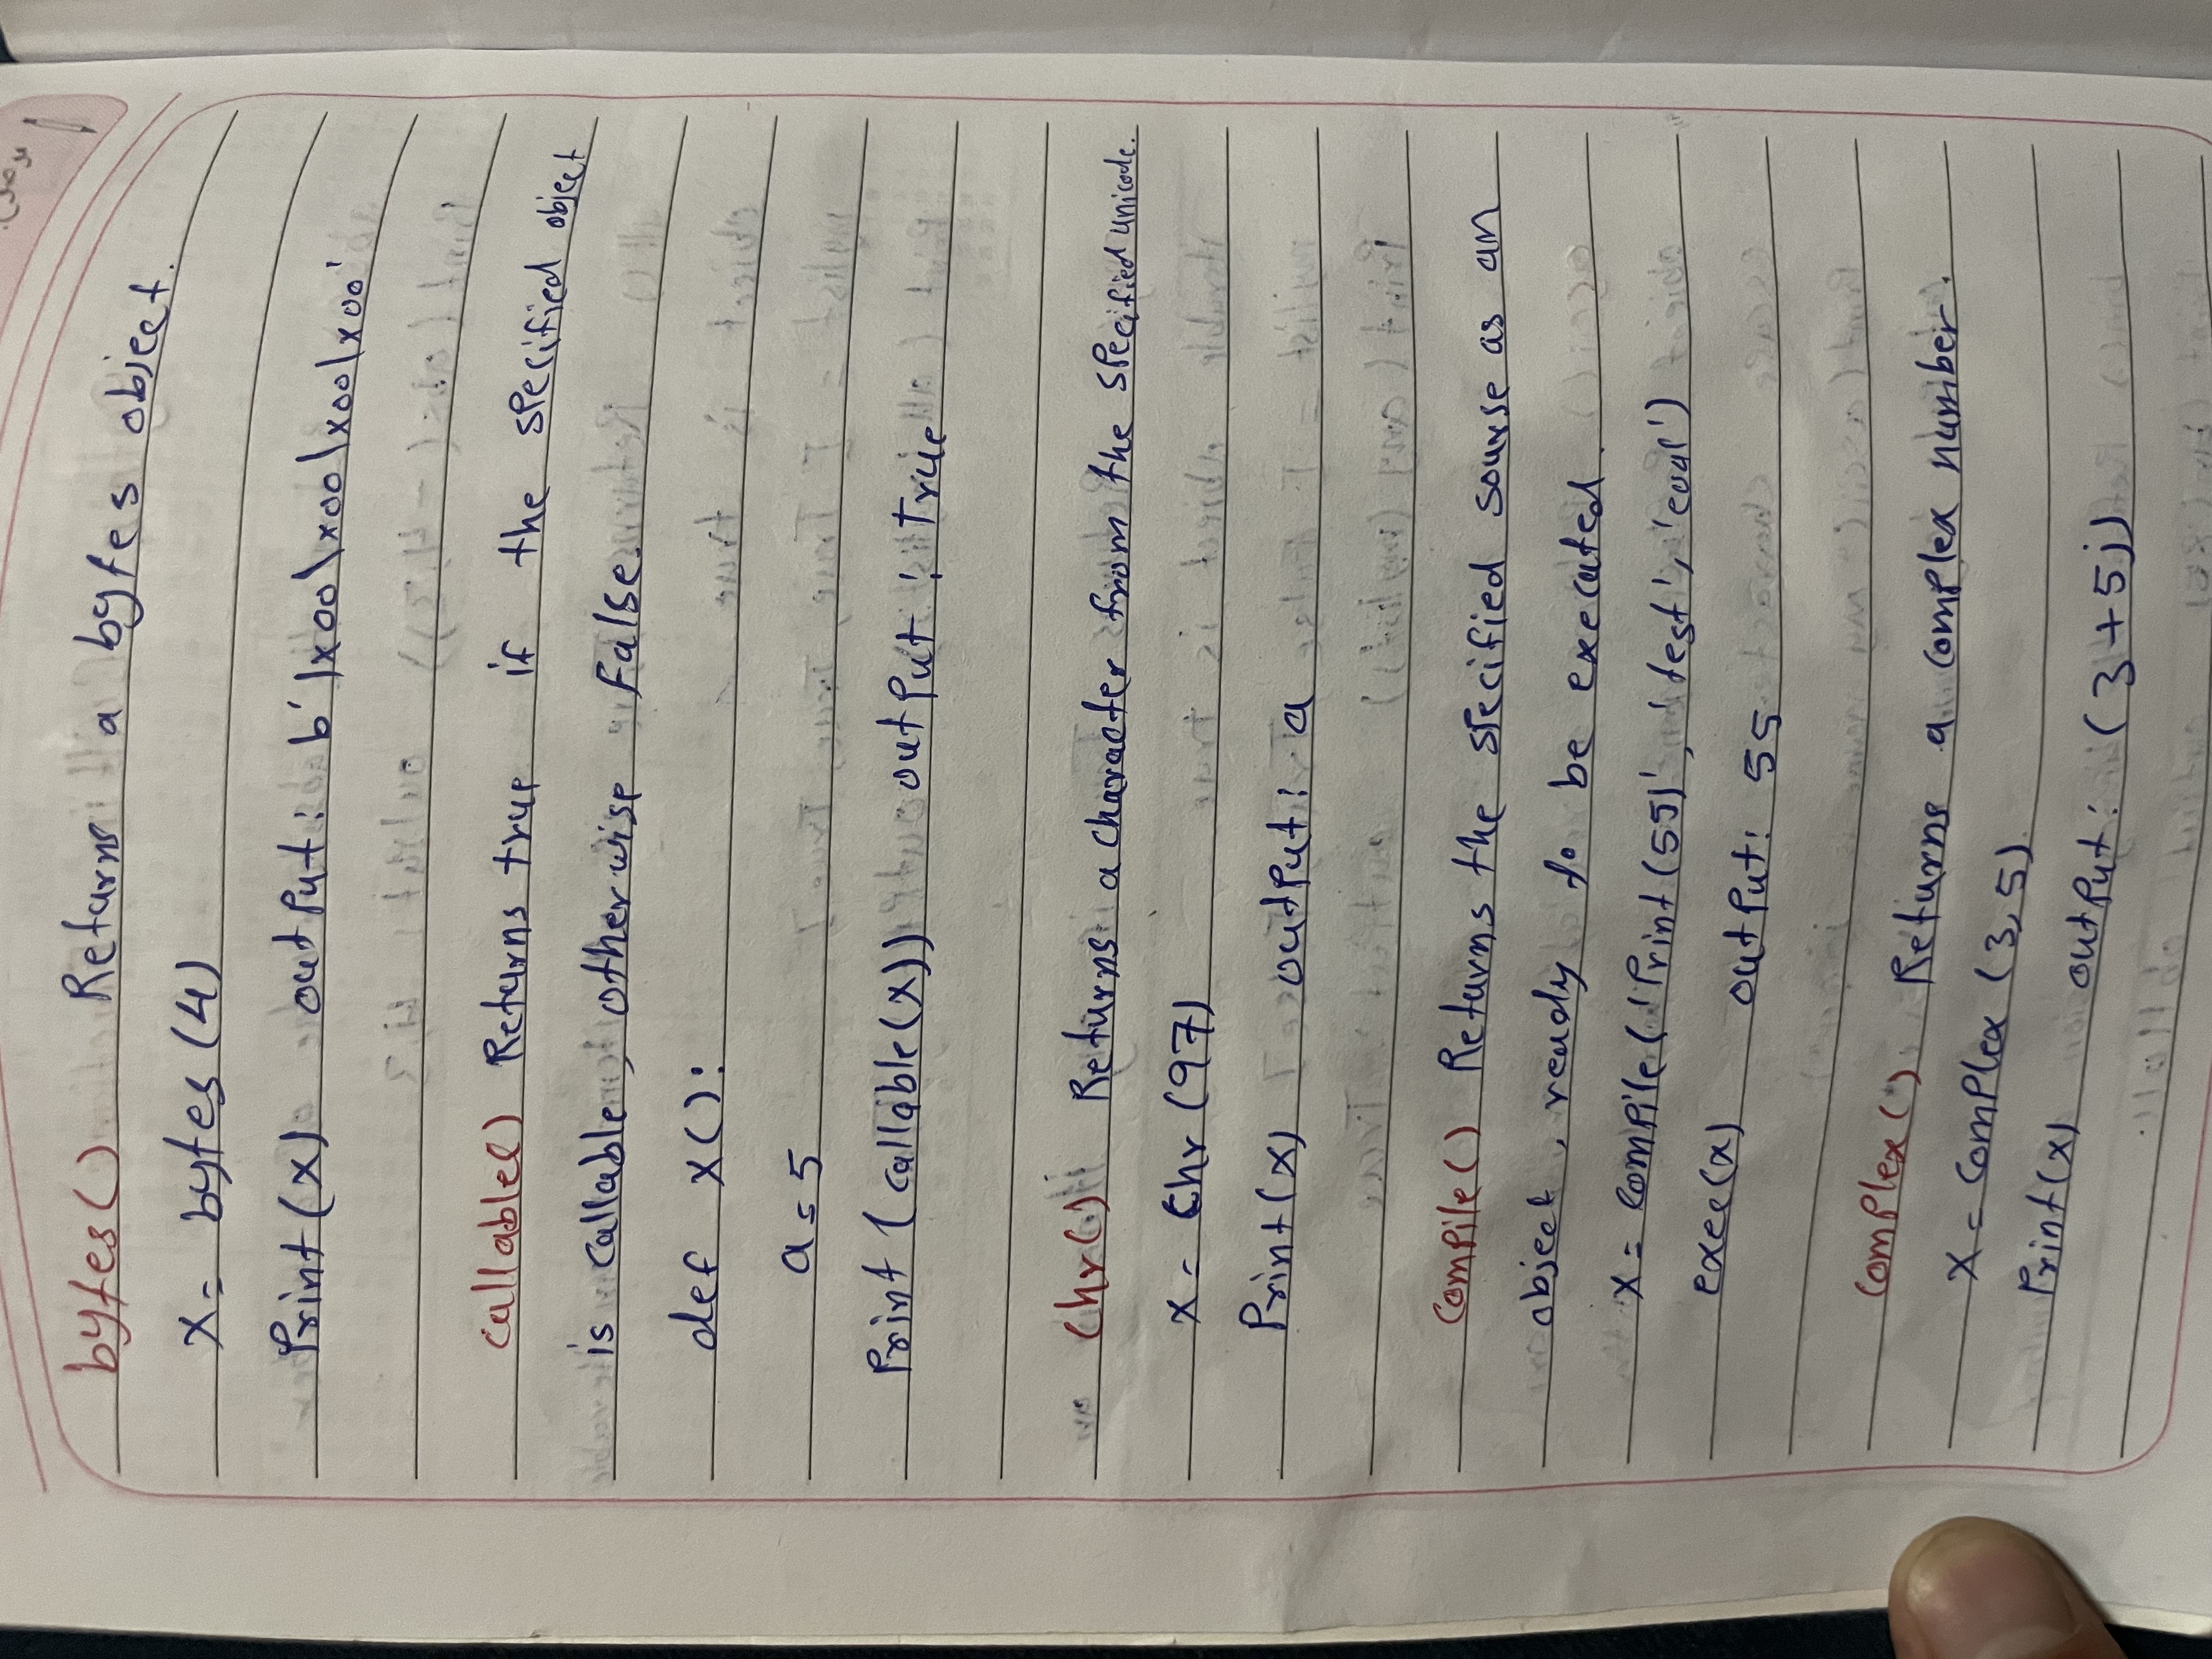 bytes() Returns a bytes object.
x= bytes (4)
Print(x) output: b'\x00\x00\x00\x00'
callable() Returns true if the specified object
is callable, otherwise False.
def x():
a=5
Print (callable(x)) output: True
Chr() Returns a character from the specified unicode.
x= Chr (97)
Print(x) output: a
Compile() Returns the specified sourse as an
object, ready to be executed.
x= Compile('Print(55)', 'test', 'eval')
exec(x) output: 55
Complex() Returns a complex number.
x= Complex (3,5)
Print(x) output: (3+5j)